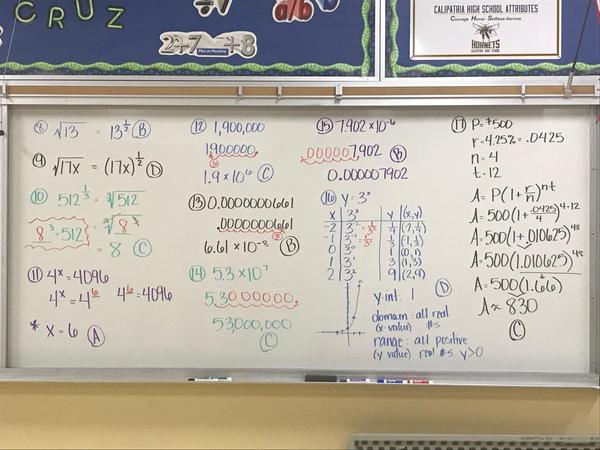 CRUZ
÷7
a/b
2+7 -+8
CALIPATRIA HIGH SCHOOL ATTRIBUTES
Courage Honor Selfless-Service
HORNETS
⑧ √13 = 13^½ Ⓑ
⑨ √17x = (17x)^½ Ⓓ
⑩ 512^⅓ = ³√512
8³=512 = ³√8³
= 8 Ⓒ
⑪ 4ˣ = 4096
4ˣ = 4⁶ 4⁶=4096
* x = 6 Ⓐ
⑫ 1,900,000
1900000.
6
1.9 x 10⁶ Ⓒ
⑬ 0.0000000661
.0000000661
8
6.61 x 10⁻⁸ Ⓑ
⑭ 5.3 x 10⁷
5.3000000.
53,000,000
Ⓒ
⑮ 7.902 x 10⁻⁶
.000007,902 Ⓑ
0.000007902
⑯ y = 3ˣ
x 3ˣ y (x,y)
-2 3⁻² = 1/3² 1/9 (-2,1/9)
-1 3⁻¹ = 1/3¹ 1/3 (-1,1/3)
0 3⁰ 1 (0,1)
1 3¹ 3 (1,3)
2 3² 9 (2,9)
y-int: 1 Ⓓ
domain: all real
(x-value) #s
range: all positive
(y value) real #s y>0
⑰ P = $500
r = 4.25% = .0425
n = 4
t = 12
A = P(1+r/n)^nt
A = 500(1+.0425/4)^4·12
A = 500(1+.010625)^48
A = 500(1.010625)^48
A = 500(1.66)
A ≈ 830
Ⓒ